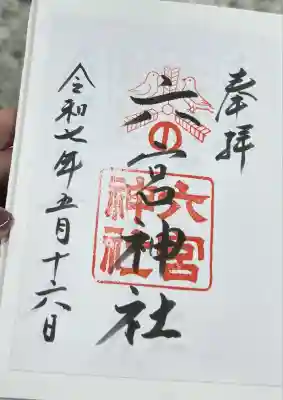 奉拝
六の宮神社
六宮
神社
令和七年五月十六日